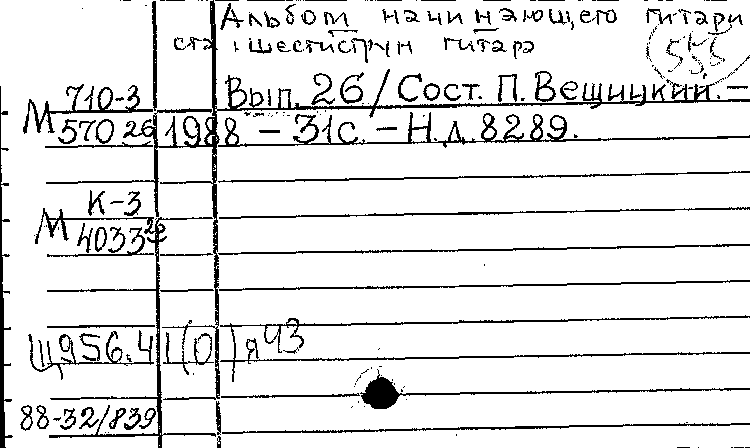 Альбом начинающего гитари
ста : шестиструн гитара
555
710-3 Вып. 26 / Сост. П. Вещицкий. –
М 570 26 1988. – 31 с. – Н.д. 8289.
К-3
М 4033 22
Щ956.41(0)я43
88-32/839